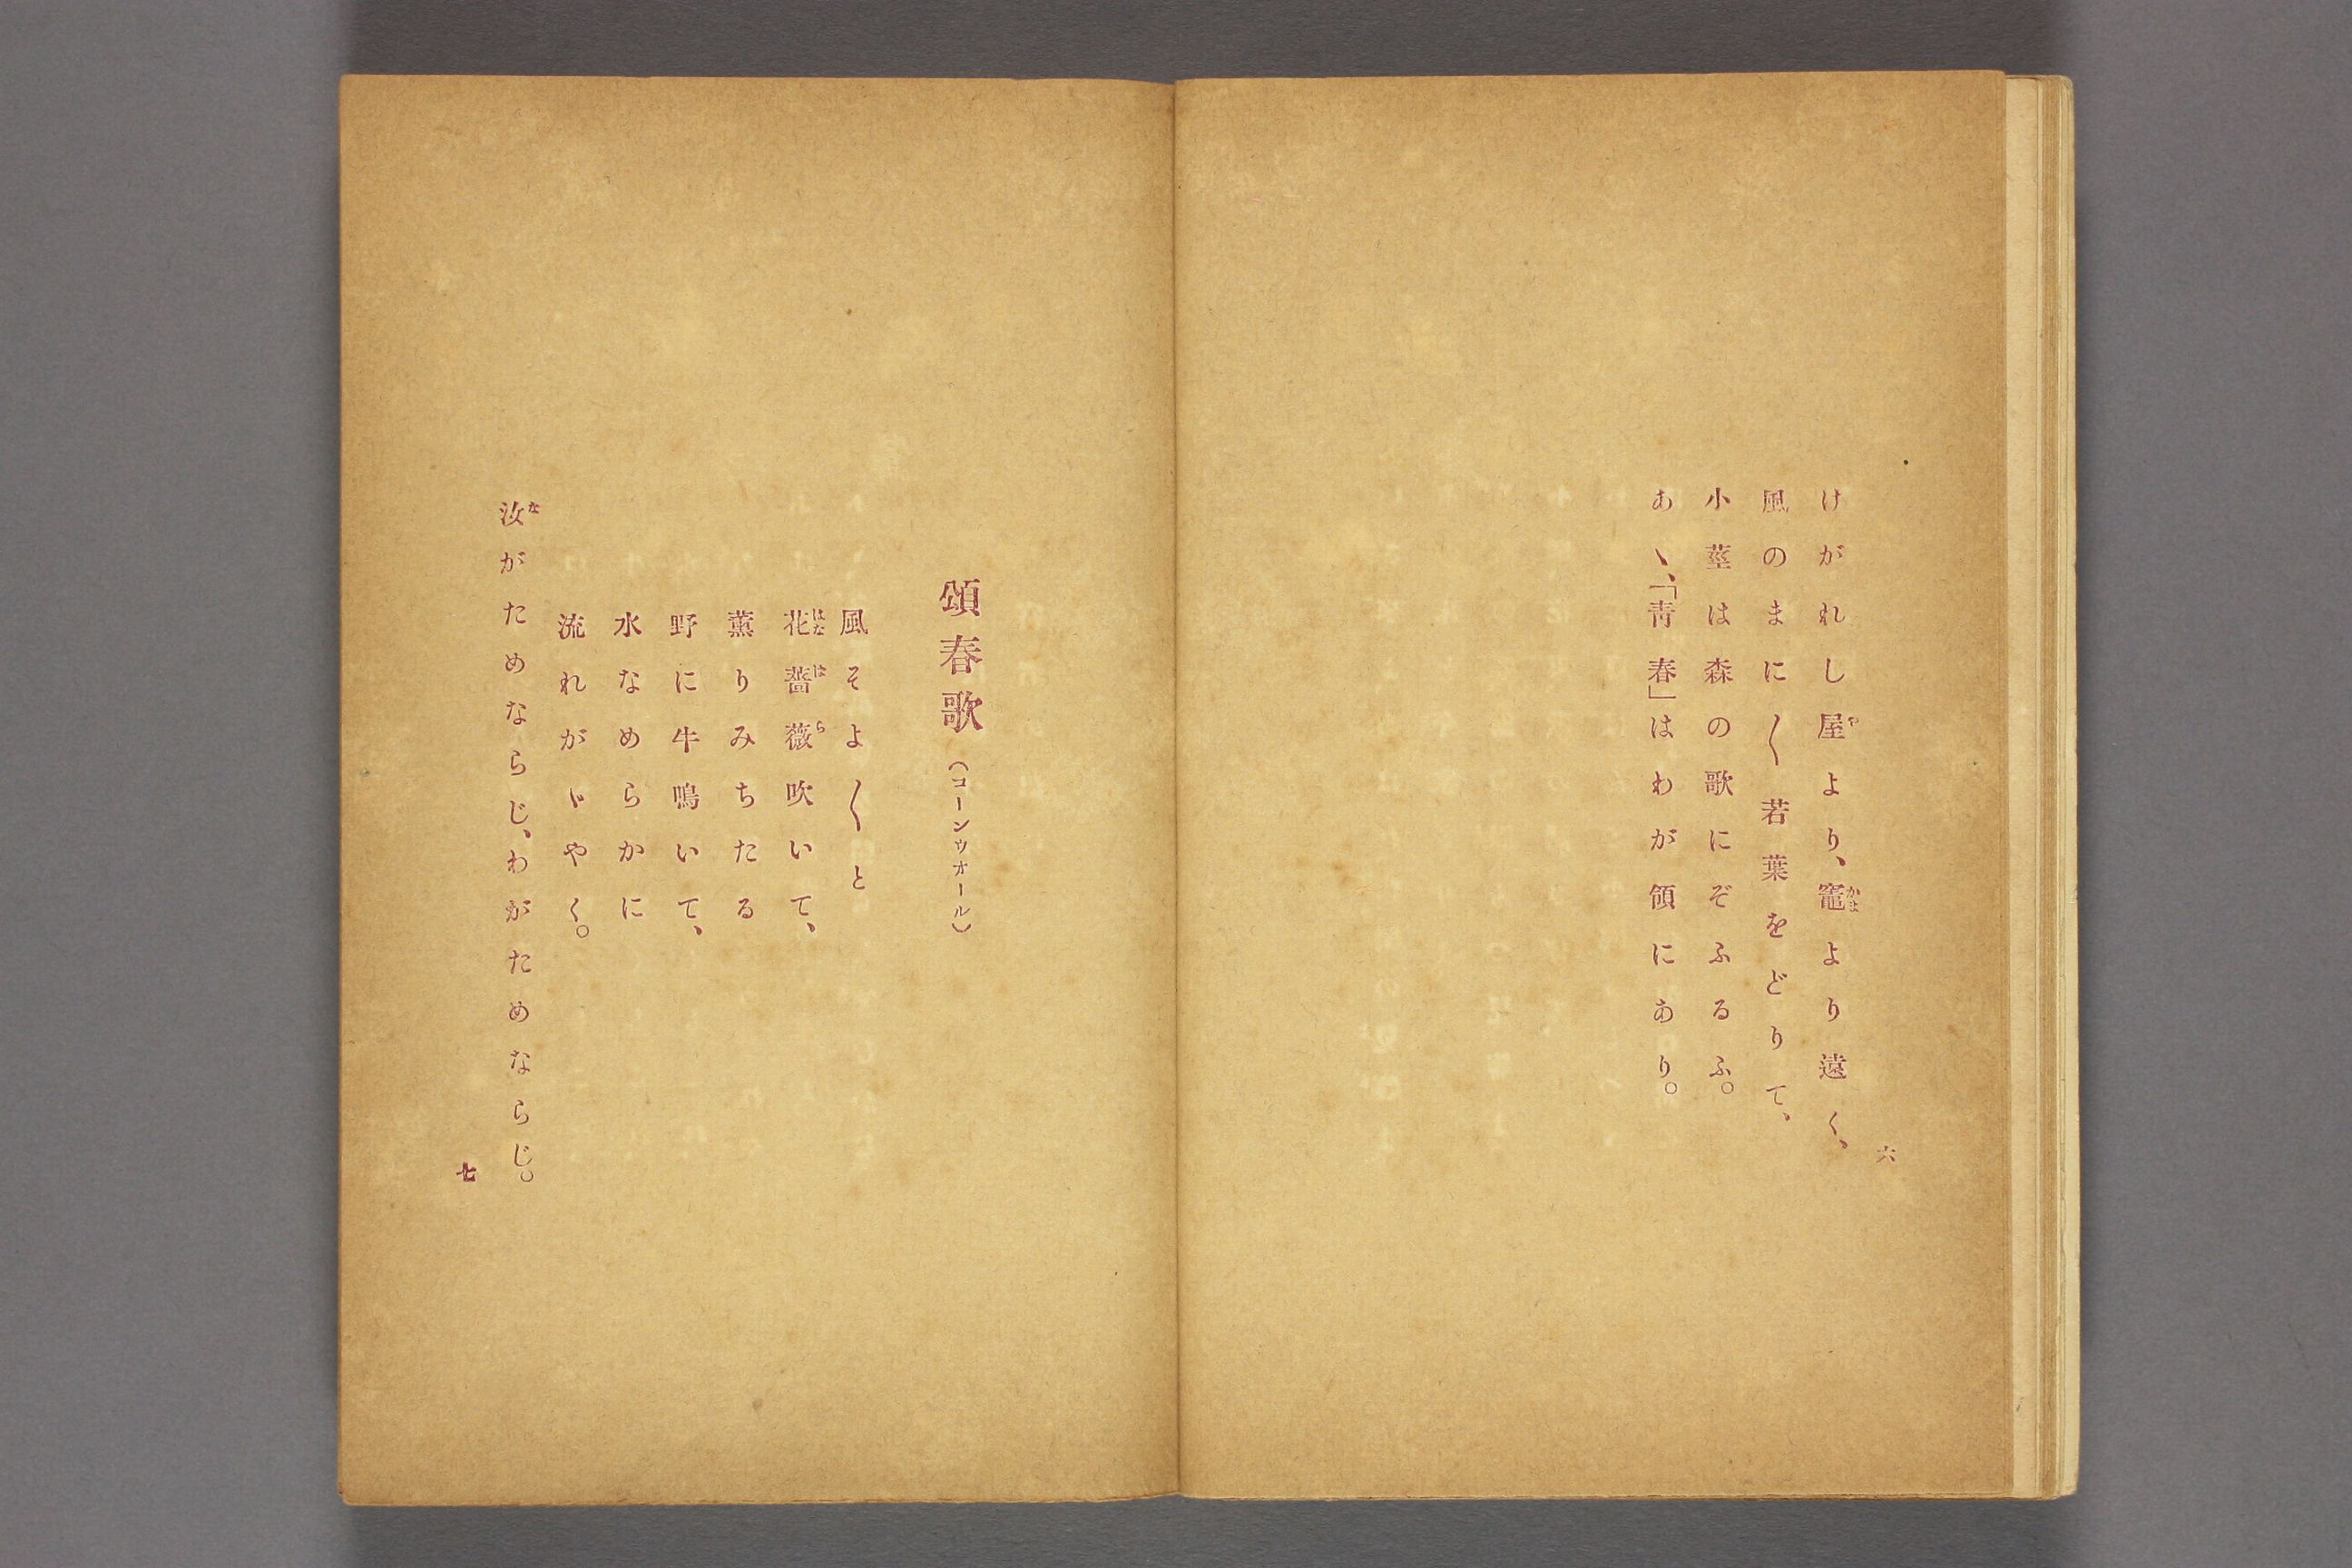 六
けがれし屋より、竈より遠く、
風のまに〳〵若葉をどりて、
小莖は森の歌にぞふるふ。
あゝ、「靑春」はわが領にあり。
頌春歌（コーンウオール）
風そよ〳〵と
花薔薇吹いて、
薫りみちたる
野に牛鳴いて、
水なめらかに
流れがゞやく。
汝がためならじ、わがためならじ。
七